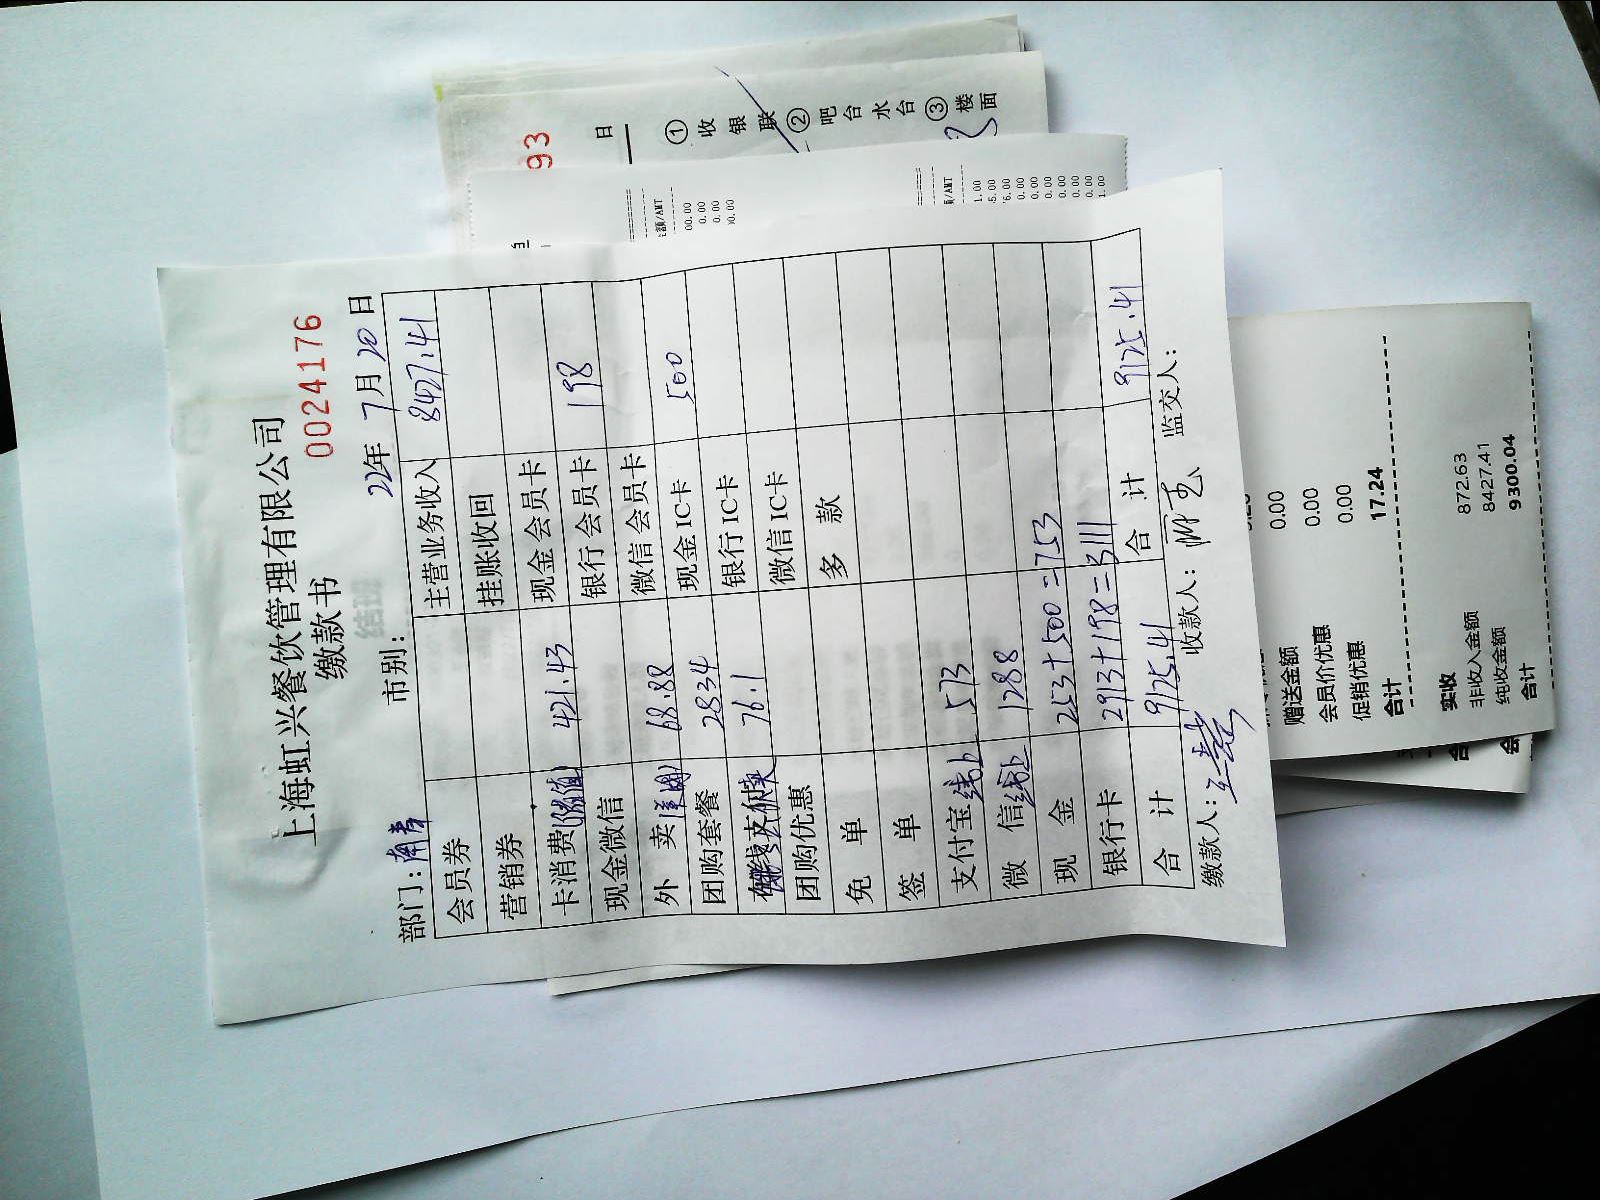 上海虹兴餐饮管理有限公司
缴款书
0024176
部门：南青 市别： 22年7月20日
会员券 主营业务收入 8427.41
营销券 挂账收回
卡消费(储值) 421.43 现金会员卡
现金微信 银行会员卡 198
外 卖 68.88 微信会员卡
团购套餐 2834 现金IC卡 500
支付 76.1 银行IC卡
团购优惠 微信IC卡
免 单 多 款
签 单
支付宝线上 573
微 信线上 1288
现 金 253+500=753
银行卡 2913+198=3111
合 计 9125.41 合 计 9125.41
缴款人： 收款人： 监交人：
93
日
①收银联②吧台水台③楼面
额/AMT
00.00
0.00
0.00
00.00
额/AMT
1.00
5.00
6.00
0.00
0.00
0.00
0.00
0.00
0.00
1.00
0.00
赠送金额 0.00
会员价优惠 0.00
促销优惠 0.00
合计 17.24
实收
非收入金额 872.63
纯收金额 8427.41
合计 9300.04